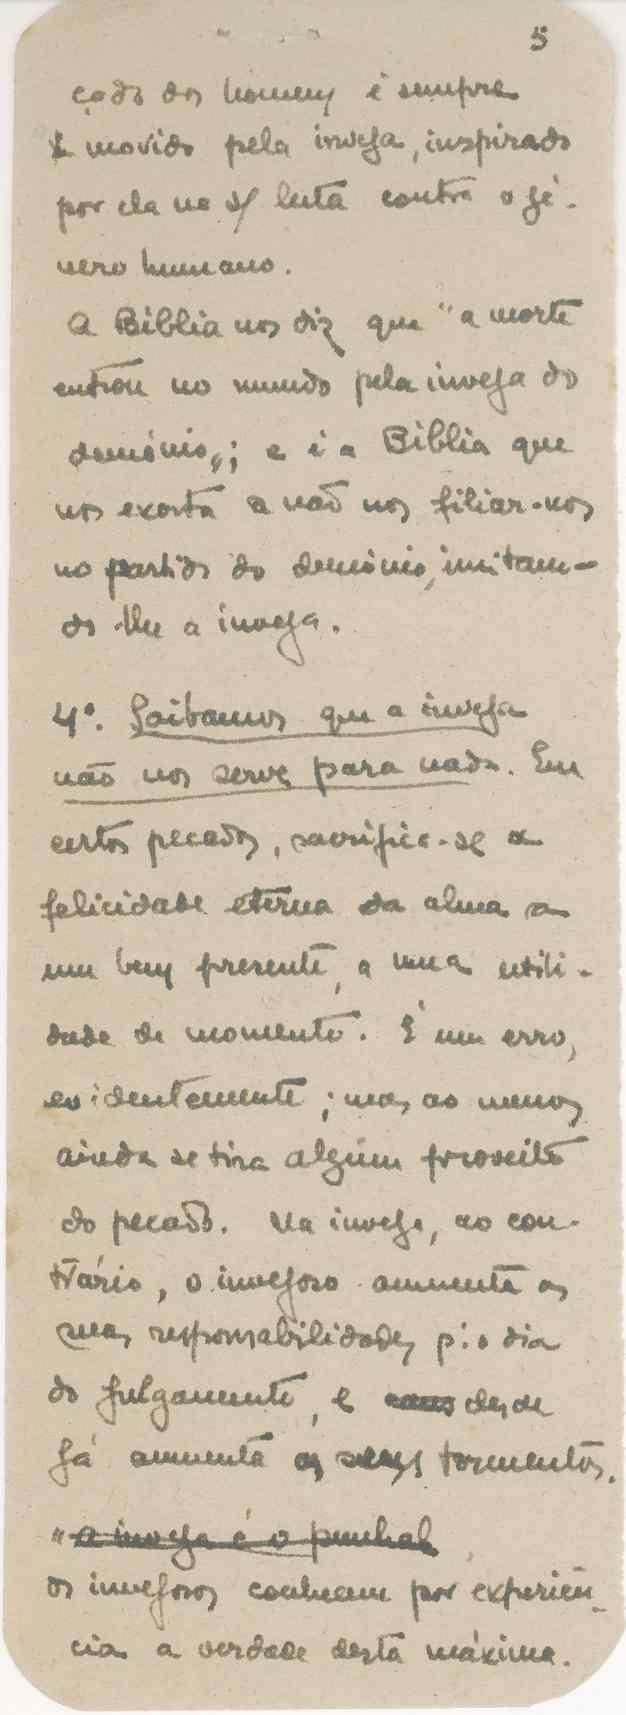 5
çado dos homens é sempre
movido pela inveja, inspirado
por ela na s/ luta contra o gé-
nero humano.
A Biblia nos diz que "a morte
entrou no mundo pela inveja do
demónio"; e é a Biblia que
nos exorta a não nos filiar-nos
no partido do demónio, imitan-
do-lhe a inveja.
4º. Saibamos que a inveja
não nos serve para nada. Em
certos pecados, sacrifica-se a
felicidade eterna da alma a
um bem presente, a uma utili-
dade de momento. É um erro,
evidentemente; mas ao menos
ainda se tira algum proveito
do pecado. Na inveja, ao con-
trário, o invejoso aumenta as
suas responsabilidades p: o dia
do julgamento, e desde
já aumenta os seus tormentos.
"a inveja é o punhal
os invejosos conhecem por experiên-
cia a verdade desta máxima.